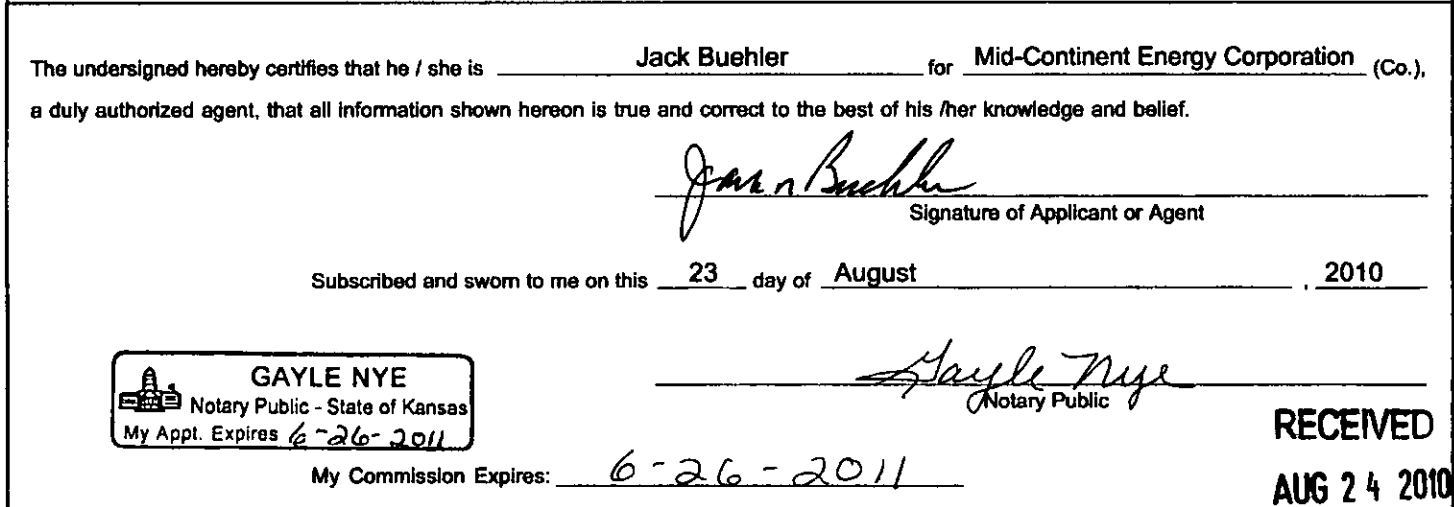 The undersigned hereby certifies that he / she is Jack Buehler for Mid-Continent Energy Corporation (Co.),
a duly authorized agent, that all information shown hereon is true and correct to the best of his /her knowledge and belief.
Jack n Buehler
Signature of Applicant or Agent
Subscribed and sworn to me on this 23 day of August , 2010
GAYLE NYE
Notary Public - State of Kansas
My Appt. Expires 6-26-2011
Gayle Nye
Notary Public
My Commission Expires: 6-26-2011
RECEIVED
AUG 24 2010